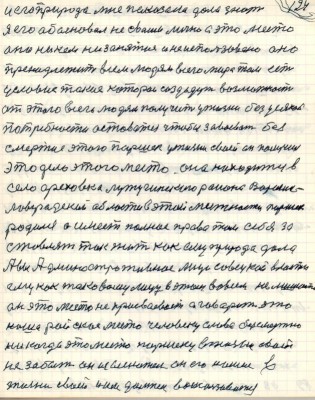 124
и сего природа мне подсказала дала знать
Я его обосновал не своим мыслию а это место
оно ни кем не занятое и не использовано оно
принадлежит всем людям всего мира там есть
условие такие которое создадут возможность
от этого всего людям получить у жизни без всякой
потребности остаться чтобы завоевать без
смертие этого паршек у жизни своей он получил
это дело этого место. она находится в
село ореховка лутугинского района Ворошило-
ловградской области в этой местности паршек
родился и имеет полное право там себя за
ставлять так жить как ему природа дала
А вы Административное лицо советской власти
ему как таковому лицу в этом совсем не мешать
он это место не присваивает а говорит это
наша райское место человеку слава бессмертно
никогда это место паршеку в жизни своей
не забыть он человек он его нашел в
жизни своей и им должен воспользоваться